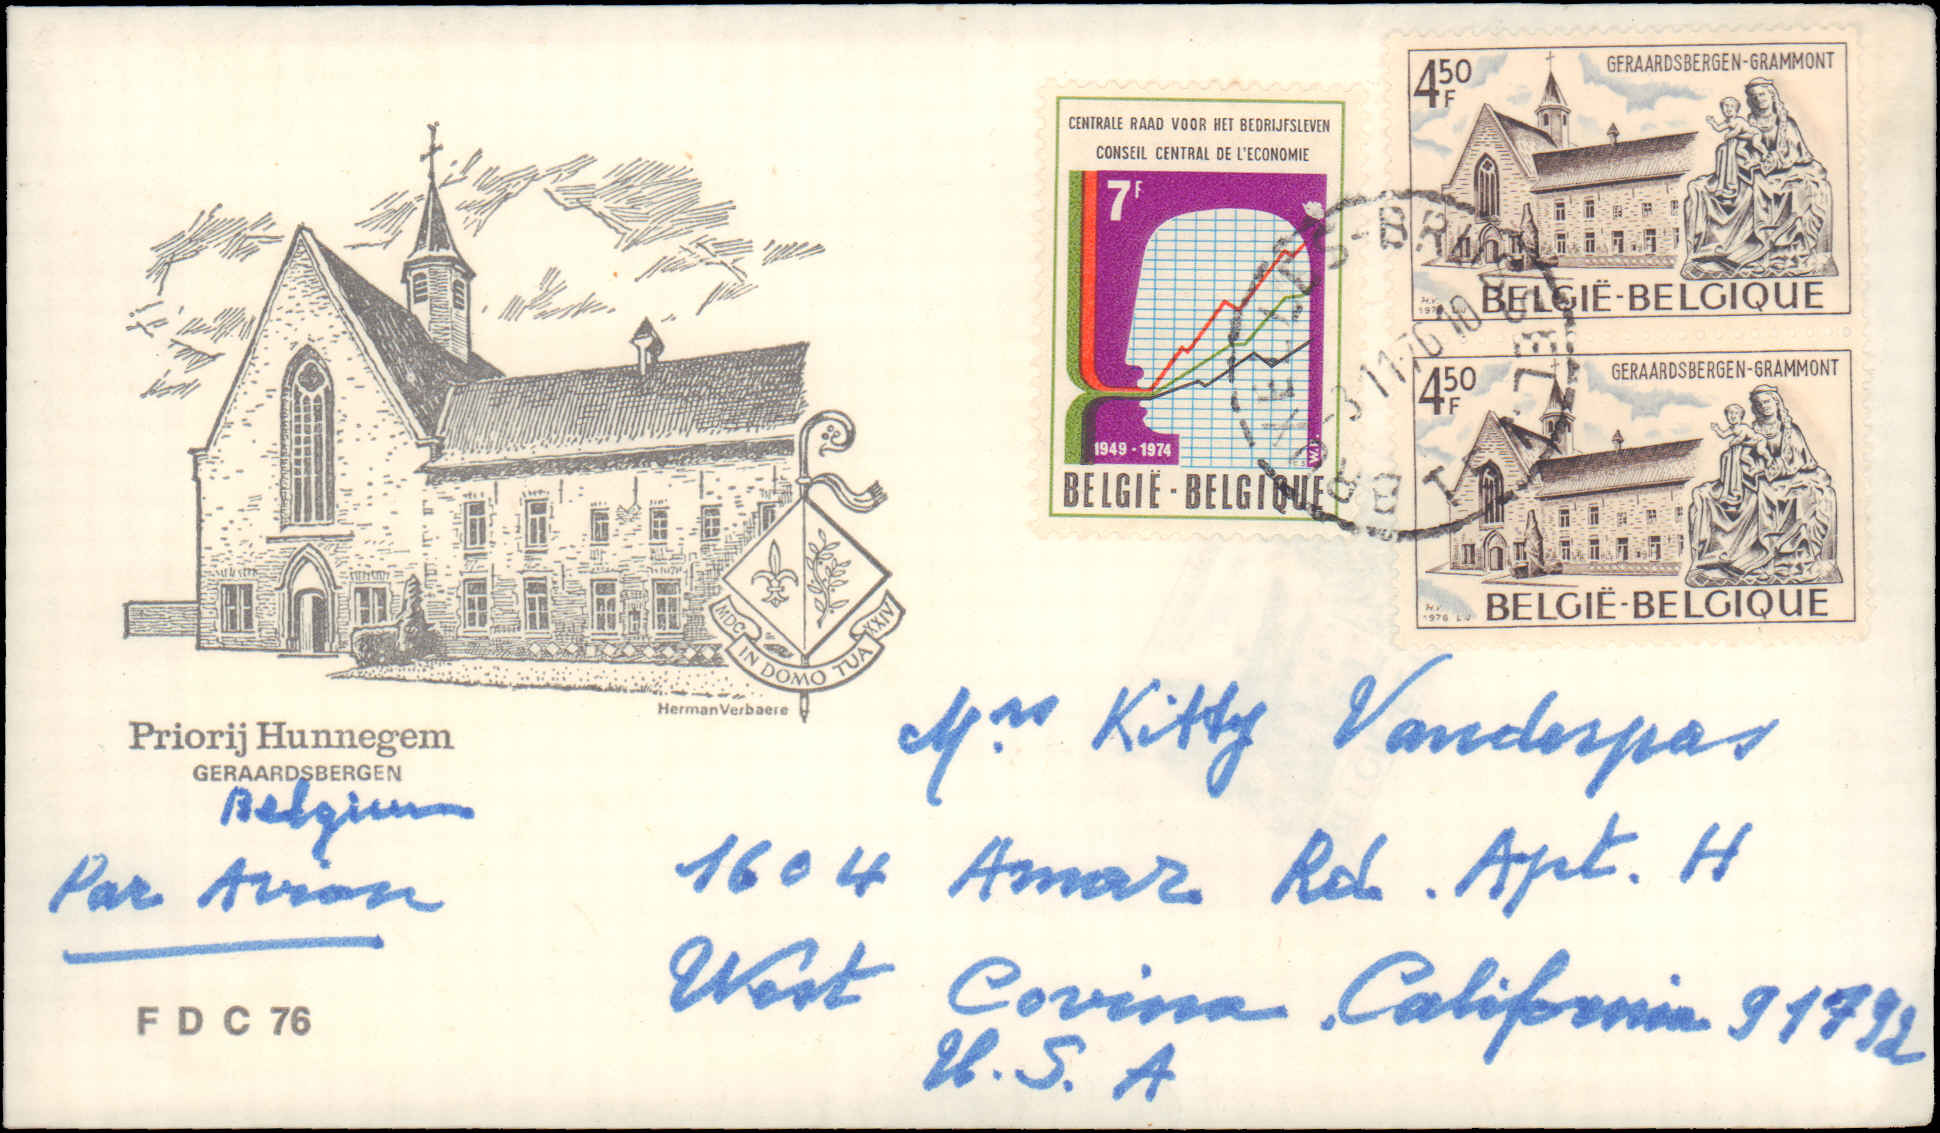 CENTRALE RAAD VOOR HET BEDRIJFSLEVEN
CONSEIL CENTRAL DE L'ECONOMIE
7F
1949 - 1974
W.P.
BELGIË - BELGIQUE
450
F
GERAARDSBERGEN-GRAMMONT
H.V.
1976
BELGIË-BELGIQUE
450
F
GERAARDSBERGEN-GRAMMONT
H.V.
1976
BELGIË-BELGIQUE
-3.11.76 10
MDC XXIV
IN DOMO TUA
Herman Verbaere
Priorij Hunnegem
GERAARDSBERGEN
Belgium
Par Avion
F D C 76
Mrs Kitty Vanderpas
1604 Amar Rd. Apt. H
West Covina, California 91792
U.S.A